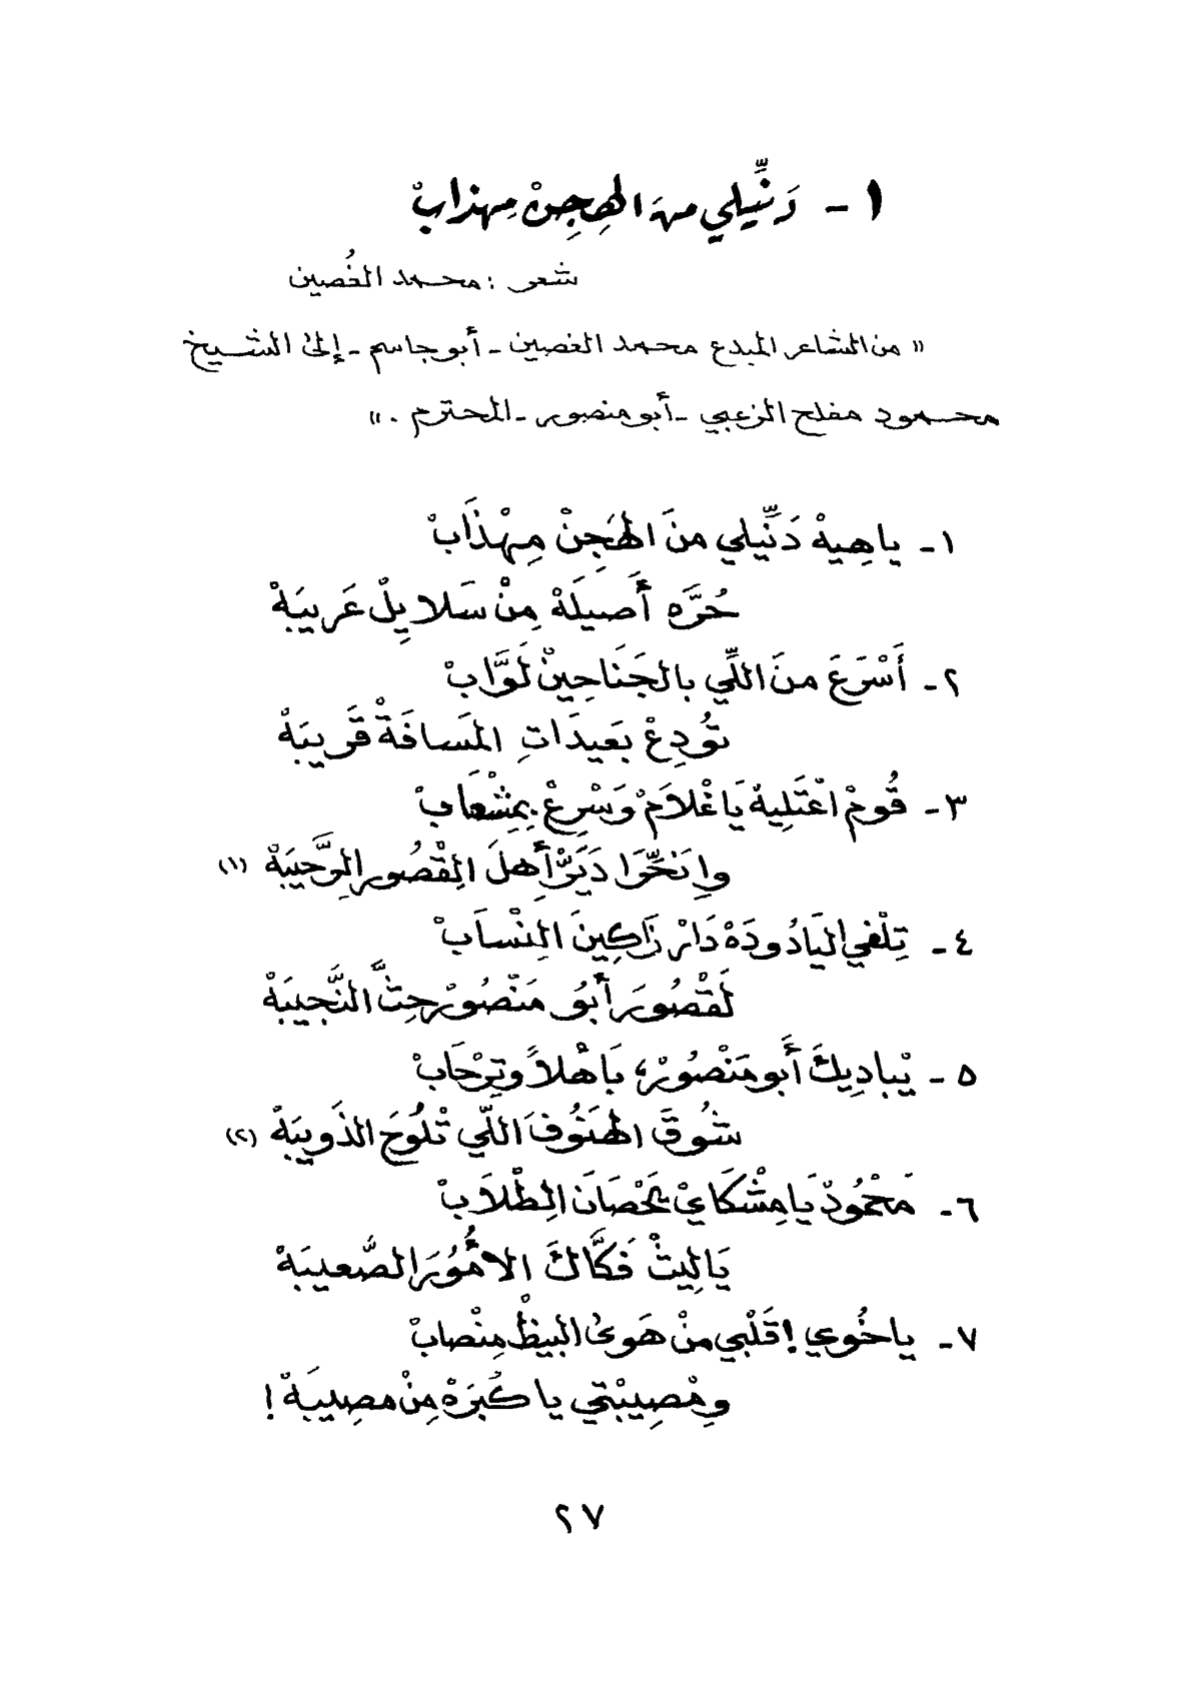 ١ - دَنِّيلي من الهِجِنْ مِهذابْ
شعر : محمد الغُصين
« من الشاعر المبدع محمد الغصين - أبو جاسم - إلى الشيخ
محمود مفلح الزعبي - أبو منصور - المحترم . »
١ - ياهِيهْ دَنِّيلي منَ الهَجِنْ مِهْذَابْ
حُرَّه أَصيلَهْ مِنْ سَلايِلْ عَرِيبَهْ
٢ - أَسْرَعَ منَ اللِّي بالجَنَاحِينْ لَوَّابْ
تُودِعْ بَعيدَاتِ المَسافَةْ قَرِيبَهْ
٣ - قُومْ اعْتَلِيهْ يَاغْلاَمْ وَسْرِعْ بِمِشْعَابْ
وإنَحِّوَا دَيَرْةْ أَهِلَ القْصُور الرِّحَيبَهْ (١)
٤ - تِلْفي اليَادُودَهْ دَارْ زَاكِينَ النْسَابْ
لَقْصُورَ أبُو مَنْصُورْ حِثَّ النَّجيبَهْ
٥ - يْباديِكَ أَبو مَنْصُورْ، بَاهْلاً وتِرْحَابْ
شُوقَ الهَنُوفَ اللّي تْلُوحَ الذَويبَهْ (٢)
٦ - مَحْمُودْ يَامِشْكَايْ يَحْصَانَ الِطْلاَبْ
يَالِيثْ فَكَّاكَ الأمُورَ الصَّعيبَهْ
٧ - ياخُوي ! قَلْبي منْ هَوىُ البيظْ مِنْصابْ
ومْصِيبْتي يا كُبَرَهْ مِنْ مصِيبَهْ !
٢٧